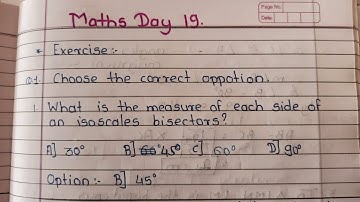 Page No.
Date
Maths Day 19.
* Exercise:-
Q.1. Choose the correct oppotion.
1. What is the measure of each side of
an isoscales bisectors?
A] 30° B] 45° C] 60° D] 90°
Option:- B] 45°